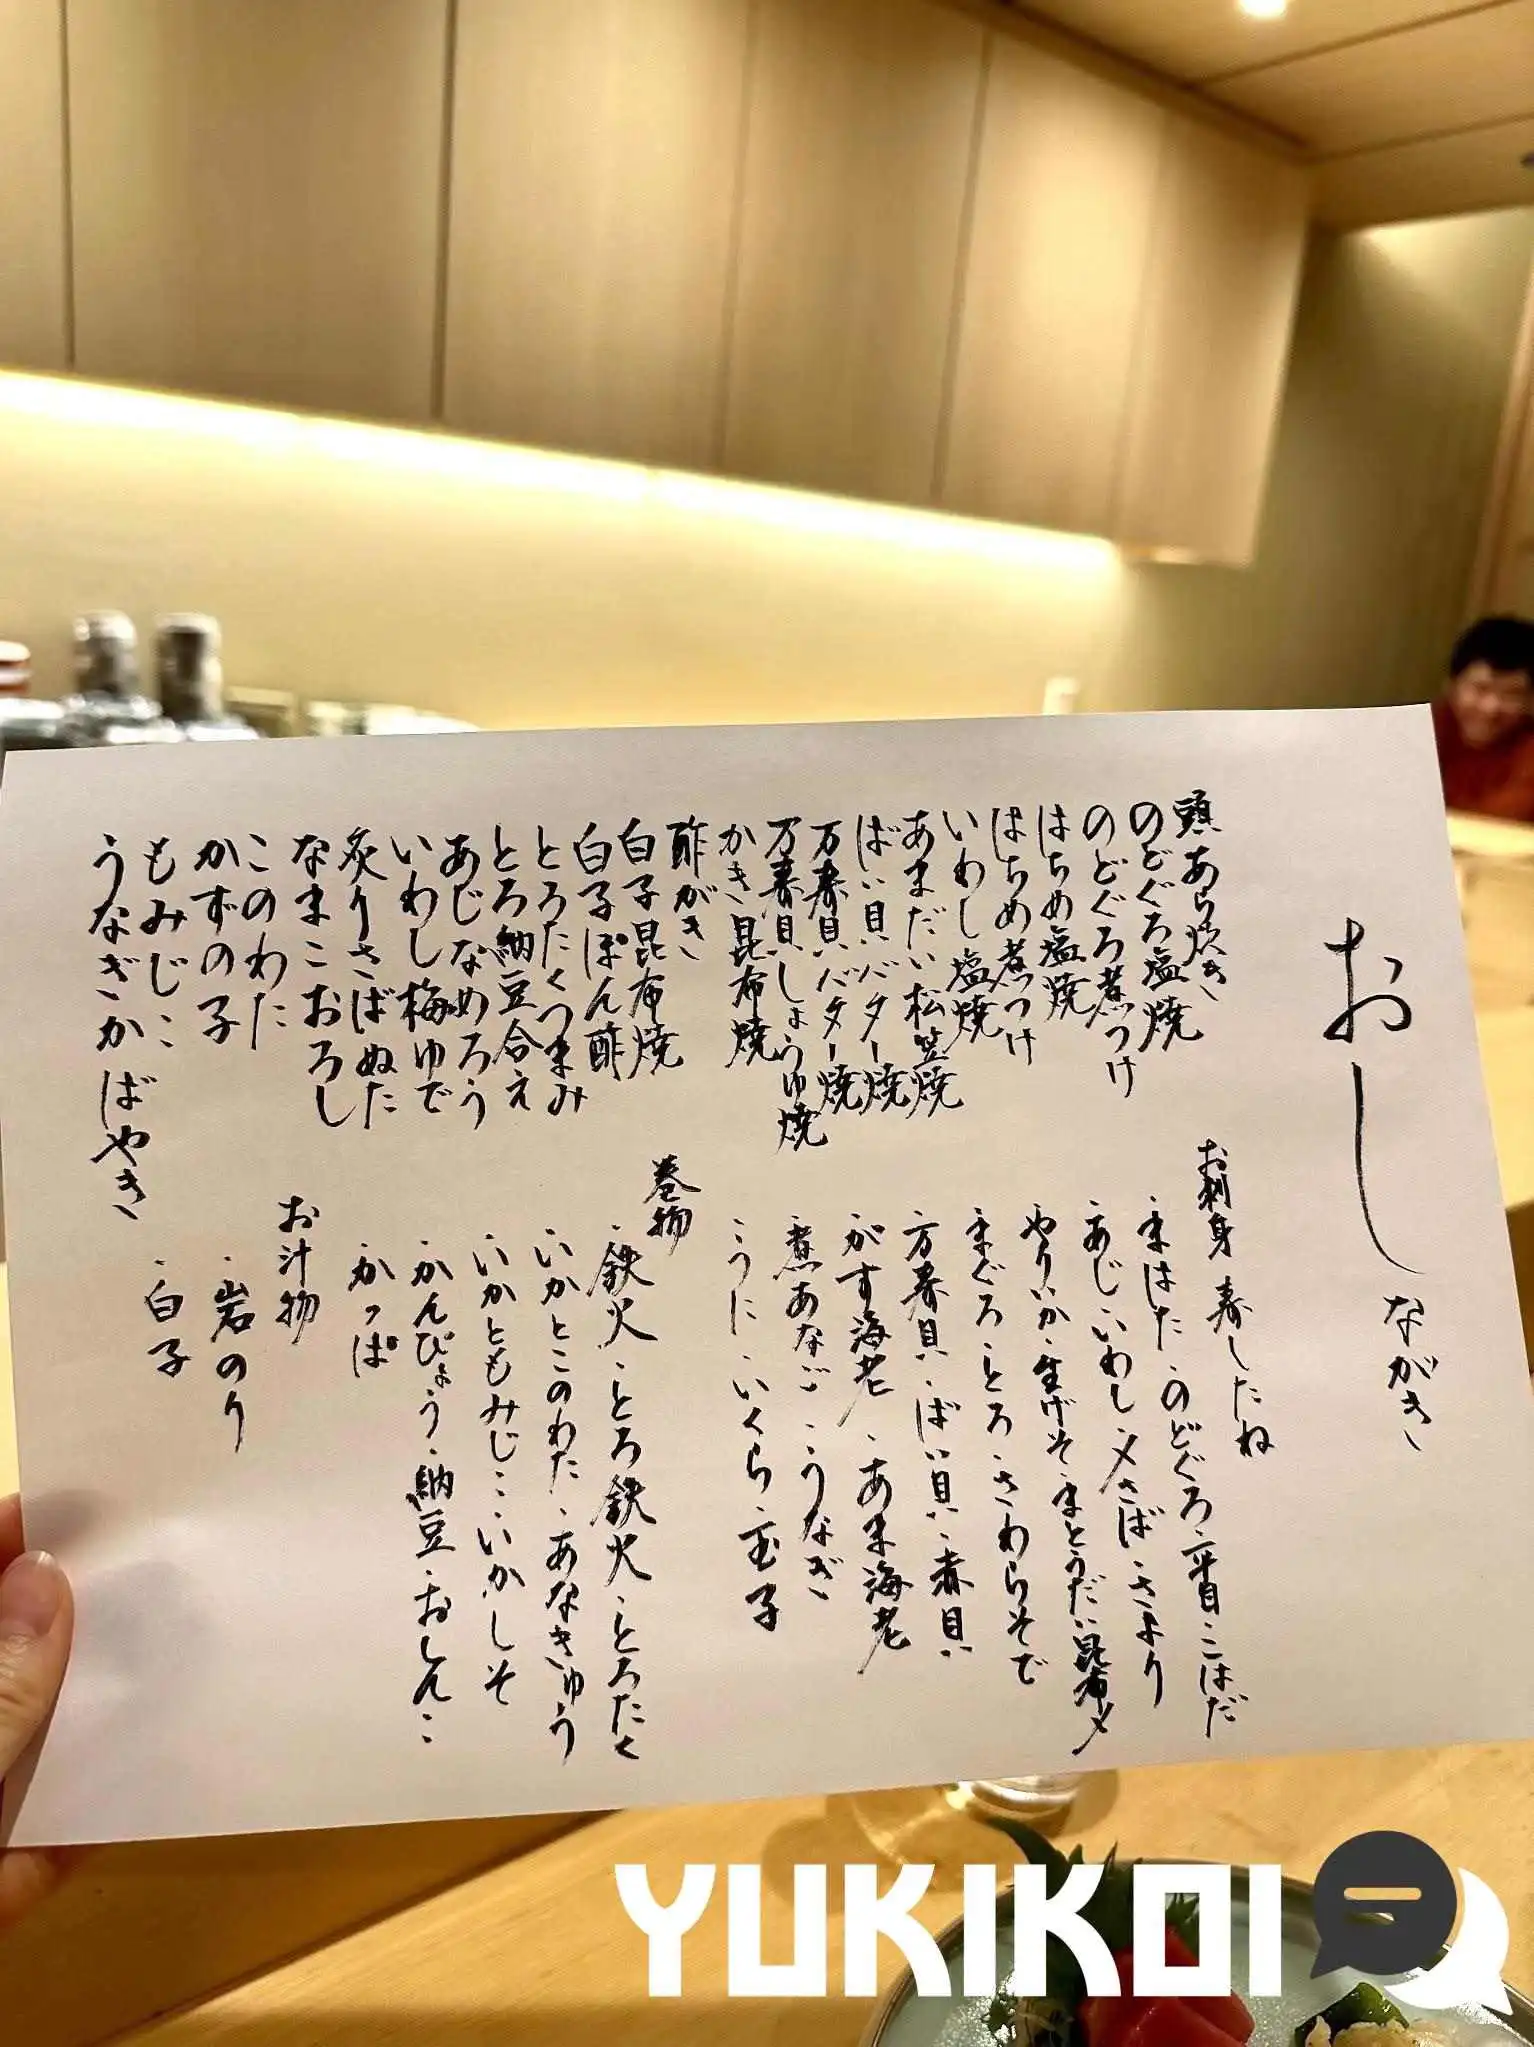 おしながき
頭あら炊き
のどぐろ塩焼
のどぐろ煮つけ
はちめ塩焼
はちめ煮つけ
いわし塩焼
あまだい松笠焼
ばい貝バター焼
万寿貝バター焼
万寿貝しょうゆ焼
かき昆布焼
酢がき
白子昆布焼
白子ぽん酢
とろたくつまみ
とろ納豆合え
あじなめろう
いわし梅ゆで
炙りさばぬた
なまこおろし
このわた
かずの子
もみじこ
うなぎかばやき
お刺身 寿したね
・まはた・のどぐろ・平目・こはだ
・あじ・いわし・〆さば・さより
・やりいか・生げそ・まとうだい昆布〆
・まぐろ・とろ・さわらそで
・万寿貝・ばい貝・赤貝
・がす海老・あま海老
・煮あなご・うなぎ
・うに・いくら・玉子
巻物
・鉄火・とろ鉄火・とろたく
・いかとこのわた・あなきゅう
・いかともみじこ・いかしそ
・かんぴょう・納豆・おしんこ
・かっぱ
お汁物
・岩のり
・白子
YUKIKOI